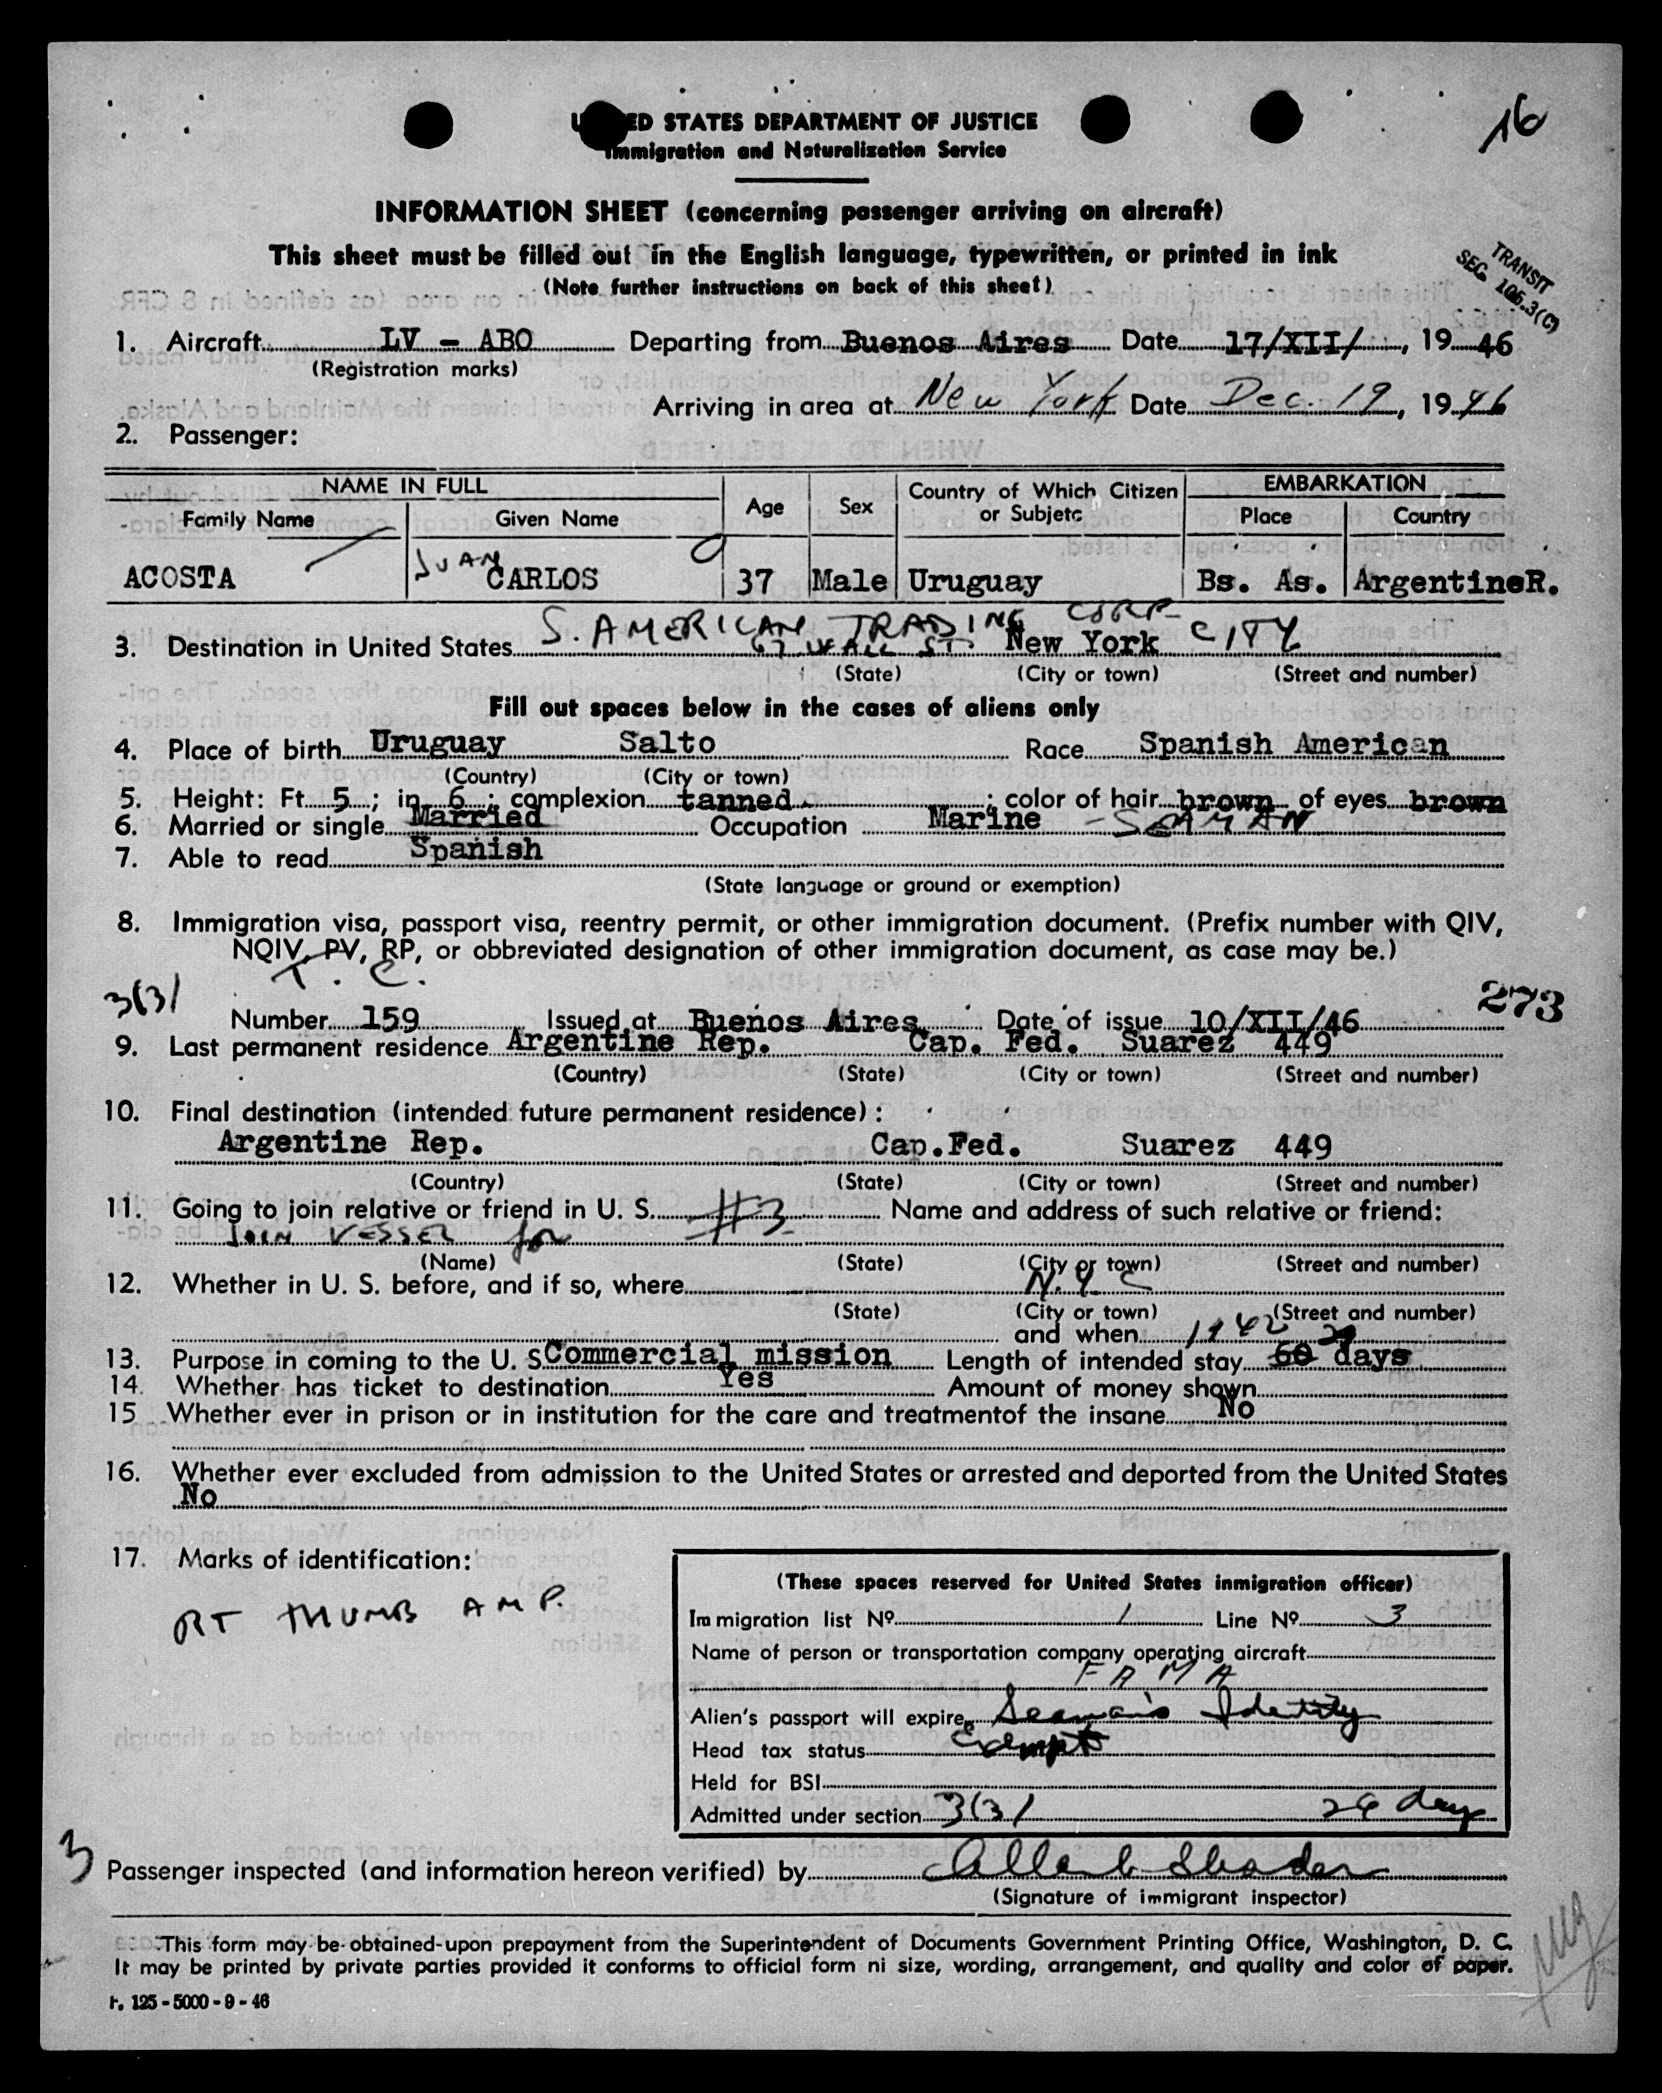 16
UNITED STATES DEPARTMENT OF JUSTICE
Immigration and Naturalization Service
INFORMATION SHEET (concerning passenger arriving on aircraft)
This sheet must be filled out in the English language, typewritten, or printed in ink
(Note further instructions on back of this sheet)
TRANSIT
SEC. 105.3(C)
1. Aircraft LV - ABO Departing from Buenos Aires Date 17/XII/, 19 46
(Registration marks)
Arriving in area at New York Date Dec. 19, 1946
2. Passenger:
NAME IN FULL Age Sex Country of Which Citizen or Subjetc EMBARKATION
Family Name Given Name Place Country
ACOSTA JUAN CARLOS 37 Male Uruguay Bs. As. ArgentineR.
S. AMERICAN TRADING CORP
3. Destination in United States 67 WALL ST. New York CITY
(State) (City or town) (Street and number)
Fill out spaces below in the cases of aliens only
4. Place of birth Uruguay Salto Race Spanish American
(Country) (City or town)
5. Height: Ft. 5; in. 6; complexion tanned; color of hair brown of eyes brown
6. Married or single Married Occupation Marine - SEAMAN
7. Able to read Spanish
(State language or ground or exemption)
8. Immigration visa, passport visa, reentry permit, or other immigration document. (Prefix number with QIV,
NQIV, PV, RP, or obbreviated designation of other immigration document, as case may be.)
T. C.
3(3)
273
Number 159 Issued at Buenos Aires Date of issue 10/XII/46
9. Last permanent residence Argentine Rep. Cap. Fed. Suarez 449
(Country) (State) (City or town) (Street and number)
10. Final destination (intended future permanent residence):
Argentine Rep. Cap.Fed. Suarez 449
(Country) (State) (City or town) (Street and number)
11. Going to join relative or friend in U. S. #3 Name and address of such relative or friend:
JOIN VESSEL for
(Name) (State) (City or town) (Street and number)
12. Whether in U. S. before, and if so, where N.Y.C
(State) (City or town) (Street and number)
and when 1942
13. Purpose in coming to the U. S. Commercial mission Length of intended stay 60 29 days
14. Whether has ticket to destination Yes Amount of money shown
15 Whether ever in prison or in institution for the care and treatmentof the insane No
16. Whether ever excluded from admission to the United States or arrested and deported from the United States
No
17. Marks of identification:
RT THUMB AMP.
(These spaces reserved for United States inmigration officer)
Immigration list Nº 1 Line Nº 3
Name of person or transportation company operating aircraft
FAMA
Alien's passport will expire Seaman's Identity
Head tax status Exempt
Held for BSI
Admitted under section 3(3) 29 days
3
Passenger inspected (and information hereon verified) by
(Signature of immigrant inspector)
This form may be obtained upon prepayment from the Superintendent of Documents Government Printing Office, Washington, D. C.
It may be printed by private parties provided it conforms to official form ni size, wording, arrangement, and quality and color of paper.
F. 125 - 5000 - 9 - 46